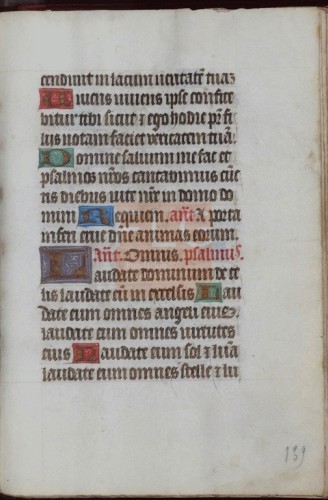 cendunt in lacum ueritatē tuaz
Viuens uiuens ipse confite
bitur tibi sicut ⁊ ego hodie pr̄ fi
liis notam faciet veritatem tuā.
Domine saluum me fac et
psalmos nr̄os cantabimus cūc
tis diebus uite nr̄e in domo do
mini Requiem. ant̄ A porta
inferi erue dn̄e animas eorum.
Ant̄. Omnis. psalmus.
Laudate dominum de ce
lis laudate eū in excelsis Lau
date eum omnes angeli eius.
laudate eum omnes uirtutes
eius Laudate eum sol ⁊ luā
laudate eum omnes stelle ⁊ lu
139